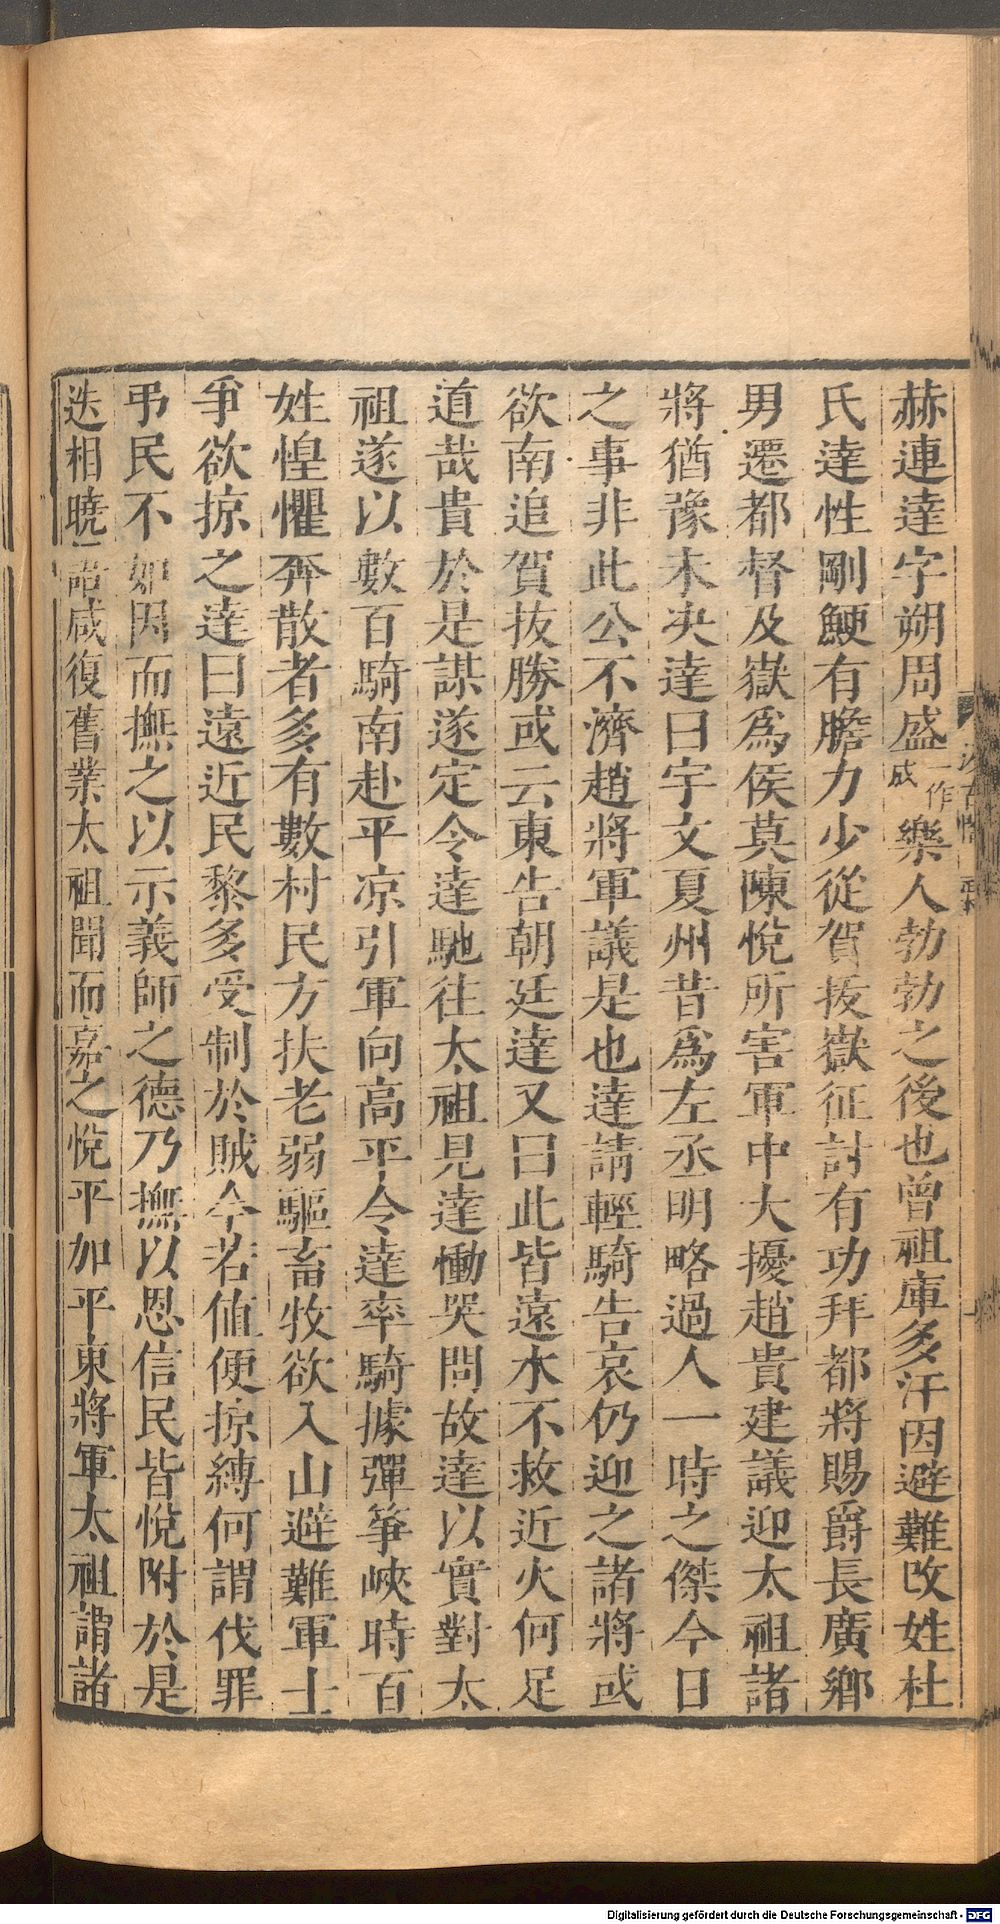 赫連達字朔周盛一作成樂人勃勃之後也曾祖庫多汗因避難改姓杜
氏達性剛鯁有膽力少從賀拔嶽征討有功拜都將賜爵長廣鄉
男遷都督及嶽爲侯莫陳悅所害軍中大擾趙貴建議迎太祖諸
將猶豫未决達曰宇文夏州昔爲左丞明略過人一時之傑今日
之事非此公不濟趙將軍議是也達請輕騎告哀仍迎之諸將或
欲南追賀拔勝或云東告朝廷達又曰此皆遠水不救近火何足
道哉貴於是謀遂定令達馳往太祖見達慟哭問故達以實對太
祖遂以數百騎南赴平凉引軍向高平令達率騎據彈箏峽時百
姓惶懼奔散者多有數村民方扶老弱驅畜牧欲入山避難軍士
爭欲掠之達曰遠近民黎多受制於賊今若値便掠縛何謂伐罪
弔民不如因而撫之以示義師之德乃撫以恩信民皆悅附於是
迭相曉語咸復舊業太祖聞而嘉之悅平加平東將軍太祖謂諸
Digitalisierung gefördert durch die Deutsche Forschungsgemeinschaft - DFG